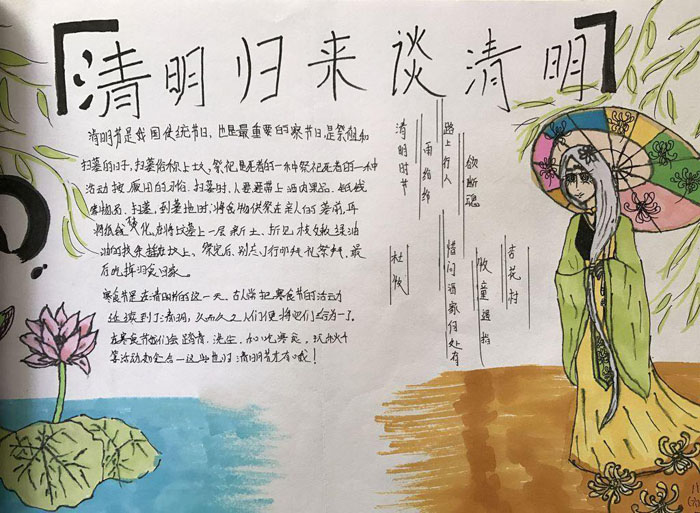 清明归来谈清明
清明节是我国传统节日，也是最重要的祭节日，是祭祖和
扫墓的日子，扫墓俗称上坟，祭祀死者的一种祭祀死者的一种
活动，按旧的习俗，扫墓时，人要携带上酒肉果品，纸钱
等物品，扫墓，到墓地时，将食物供祭在亲人的墓前，再
将纸钱焚化，为将坟墓上一层新土，折几枝嫩绿油
油的枝条插在坟上，祭完后，叩行礼祭拜，最
后吃掉归食归家
寒食节是在清明的这一天，古人常把寒食节的活动
延续到了清明，久而久之人们便将他们合为一了。
在寒食节我们会踏青、和吃寒食、玩
等活动和全合一这些也归清明节才有哦！
清明时节
雨纷纷
路上行人
欲断魂
杜牧
借问酒家何处有
牧童遥指
杏花村